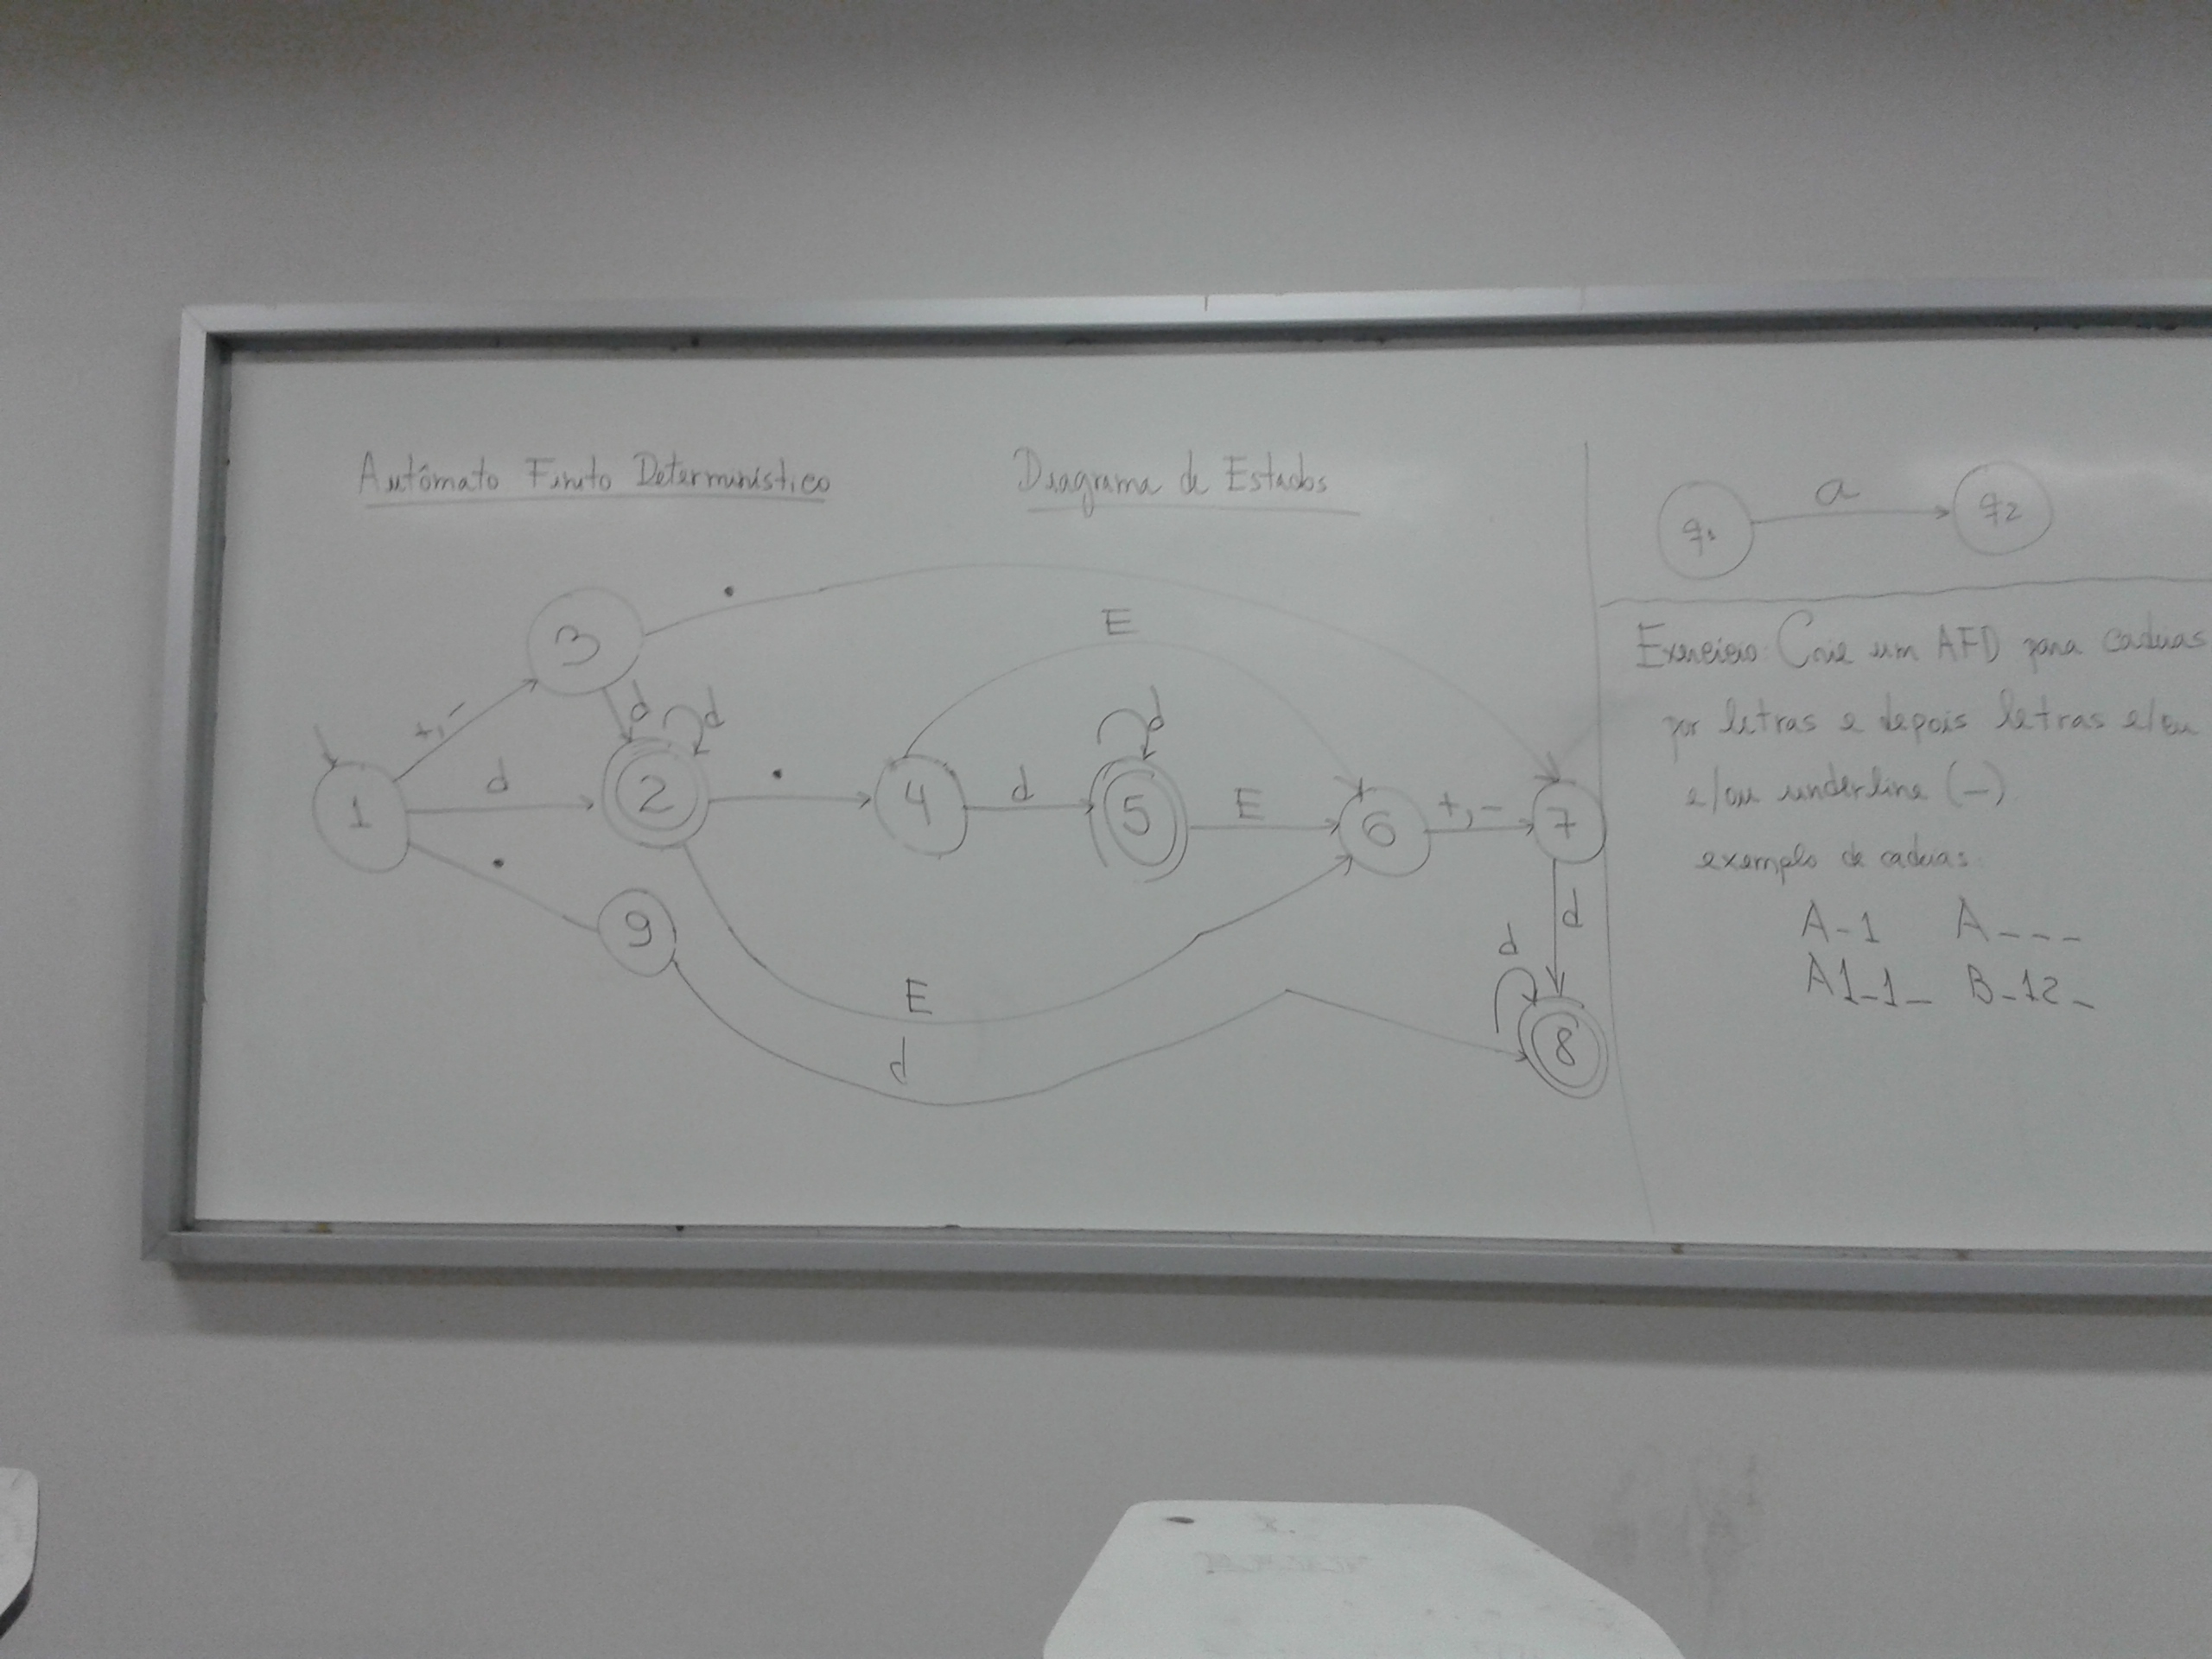 Autômato Finito Determinístico
Diagrama de Estados
3
.
E
+,-
d
d
1
d
2
.
4
d
5
d
E
6
+,-
7
.
9
E
d
d
d
8
q1
a
q2
Exercício: Crie um AFD para cadeias
por letras e depois letras e/ou
e/ou underline (_).
exemplo de cadeias:
A_1 A___
A1_1_ B_12_